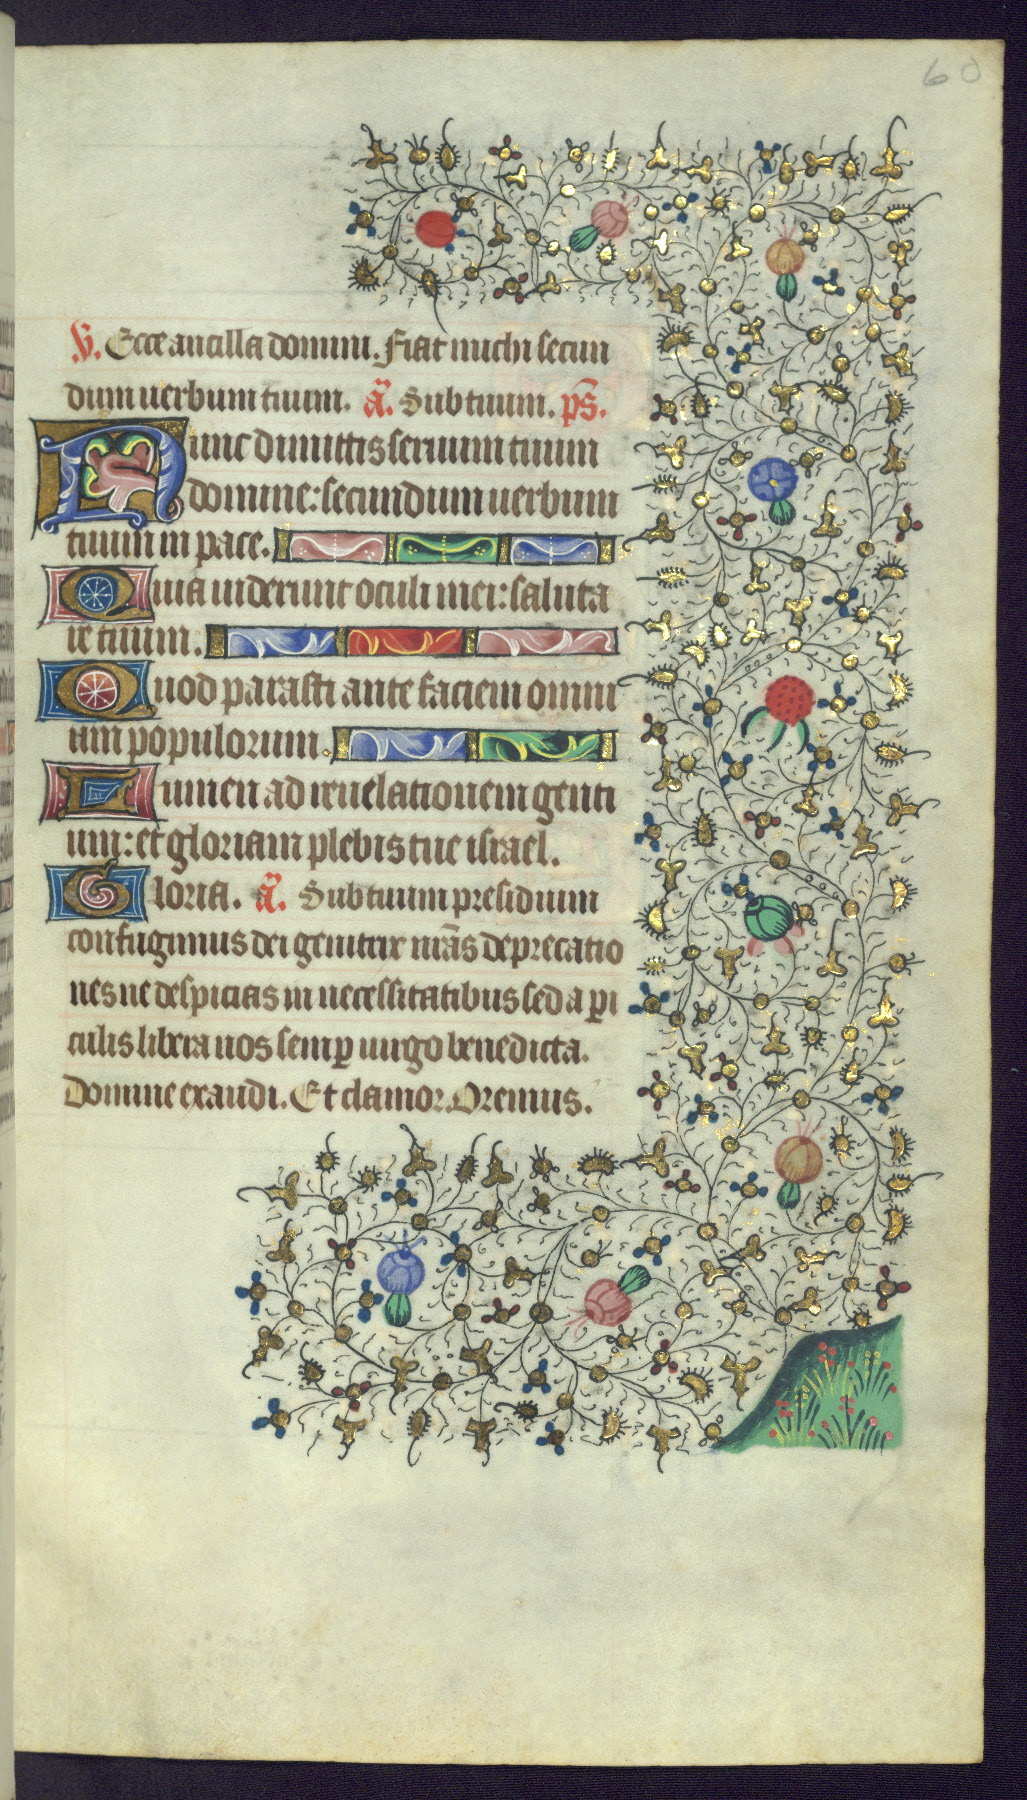 60
V. Ecce ancilla domini. Fiat michi secun
dum uerbum tuum. a̅. Sub tuum. ps̅.
Nunc dimittis seruum tuum
domine: secundum uerbum
tuum in pace.
Quia uiderunt oculi mei: saluta
re tuum.
Quod parasti ante faciem omni
um populorum.
Lumen ad reuelationem genti
um: et gloriam plebis tue israel.
Gloria. a̅. Sub tuum presidium
confugimus dei genitrix nr̃as deprecatio
nes ne despicias in necessitatibus sed a ꝑi
culis libera nos semꝑ uirgo benedicta.
Domine exaudi. Et clamor. Oremus.